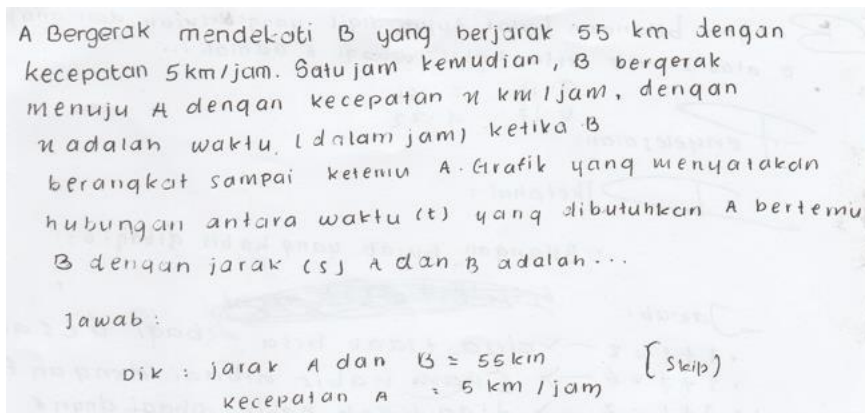 A Bergerak mendekati B yang berjarak 55 km dengan
kecepatan 5km/jam. Satu jam kemudian, B bergerak
menuju A dengan kecepatan n km/jam, dengan
n adalah waktu (dalam jam) ketika B
berangkat sampai ketemu A. Grafik yang menyatakan
hubungan antara waktu (t) yang dibutuhkan A bertemu
B dengan jarak (s) A dan B adalah...
Jawab :
Dik : jarak A dan B = 55km [Skip)
kecepatan A : 5 km / jam